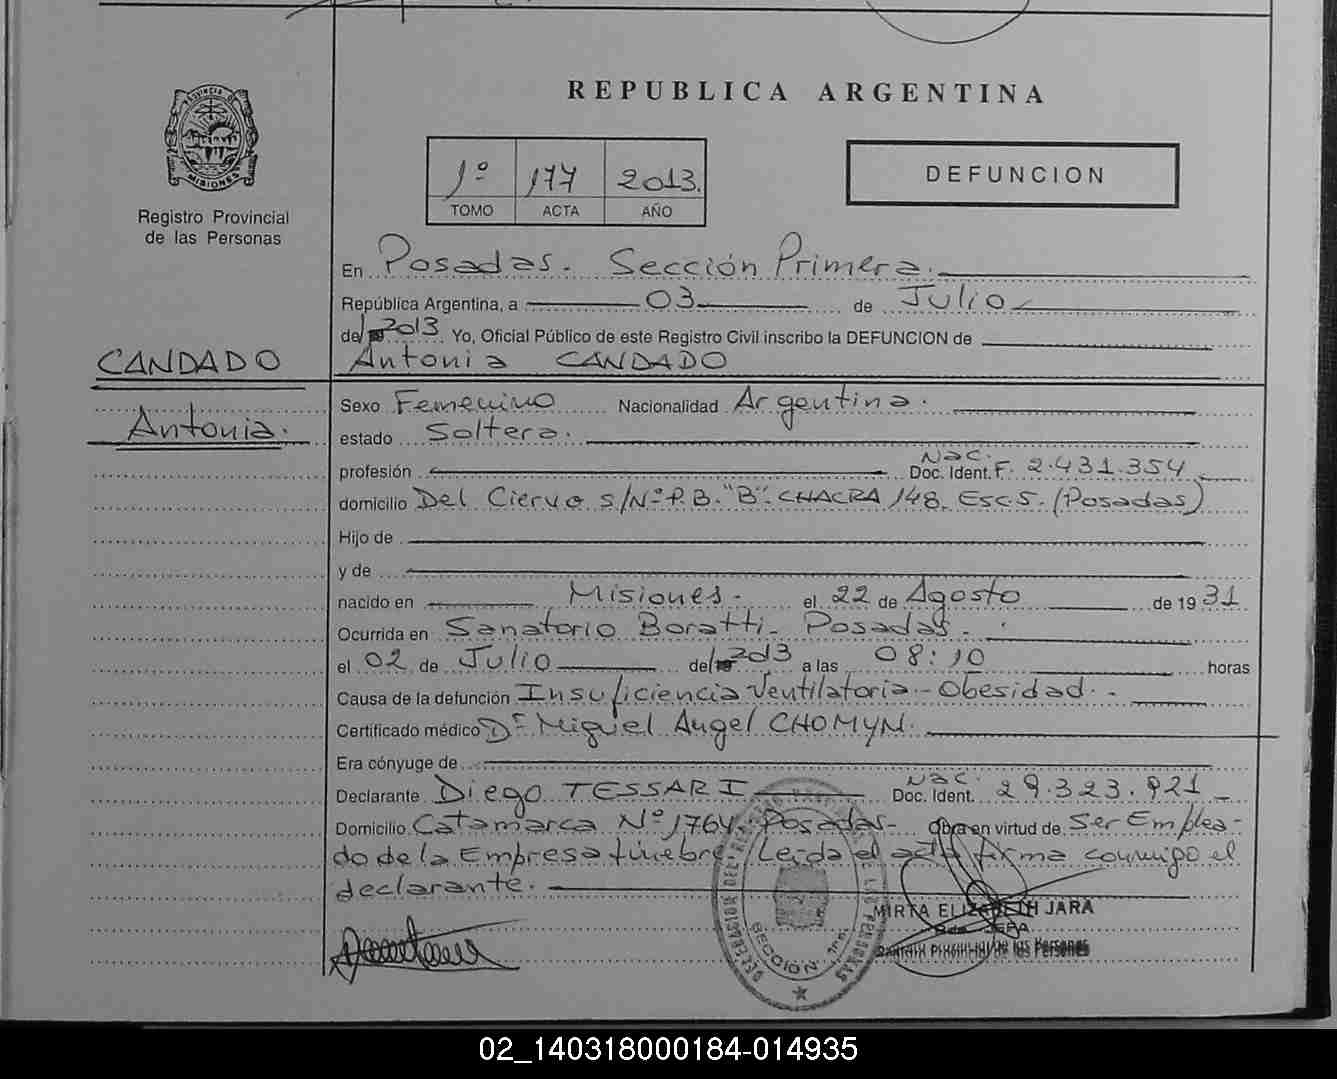 REPUBLICA ARGENTINA
PROVINCIA DE MISIONES
Registro Provincial
de las Personas
1º 177 2013.
TOMO ACTA AÑO
DEFUNCION
En Posadas. Sección Primera.
República Argentina, a 03 de Julio
de 2013 Yo, Oficial Público de este Registro Civil inscribo la DEFUNCION de
Antonia CANDADO
CANDADO
Antonia.
Sexo Femenino Nacionalidad Argentina.
estado Soltera.
profesión Doc. Ident. Nac. F. 2.431.354
domicilio Del Ciervo s/Nº P.B. "B". CHACRA 148. Esc 5. (Posadas)
Hijo de
y de
nacido en Misiones. el 22 de Agosto de 1931
Ocurrida en Sanatorio Boratti. Posadas.
el 02 de Julio de 2013 a las 08:10 horas
Causa de la defunción Insuficiencia Ventilatoria - Obesidad.
Certificado médico Dr. Miguel Angel CHOMYN.
Era cónyuge de
Declarante Diego TESSARI Doc. Ident. Nac. 29.323.921
Domicilio Catamarca Nº 1764. Posadas- Obra en virtud de Ser Emplea-
do de la Empresa fúnebre. Leida el acta firma conmigo el
declarante.
DELEGACION DEL REGISTRO DE LAS PERSONAS
SECCION 1ra.
MIRTA ELIZABETH JARA
JEFA
Provincial de las Personas
02_140318000184-014935